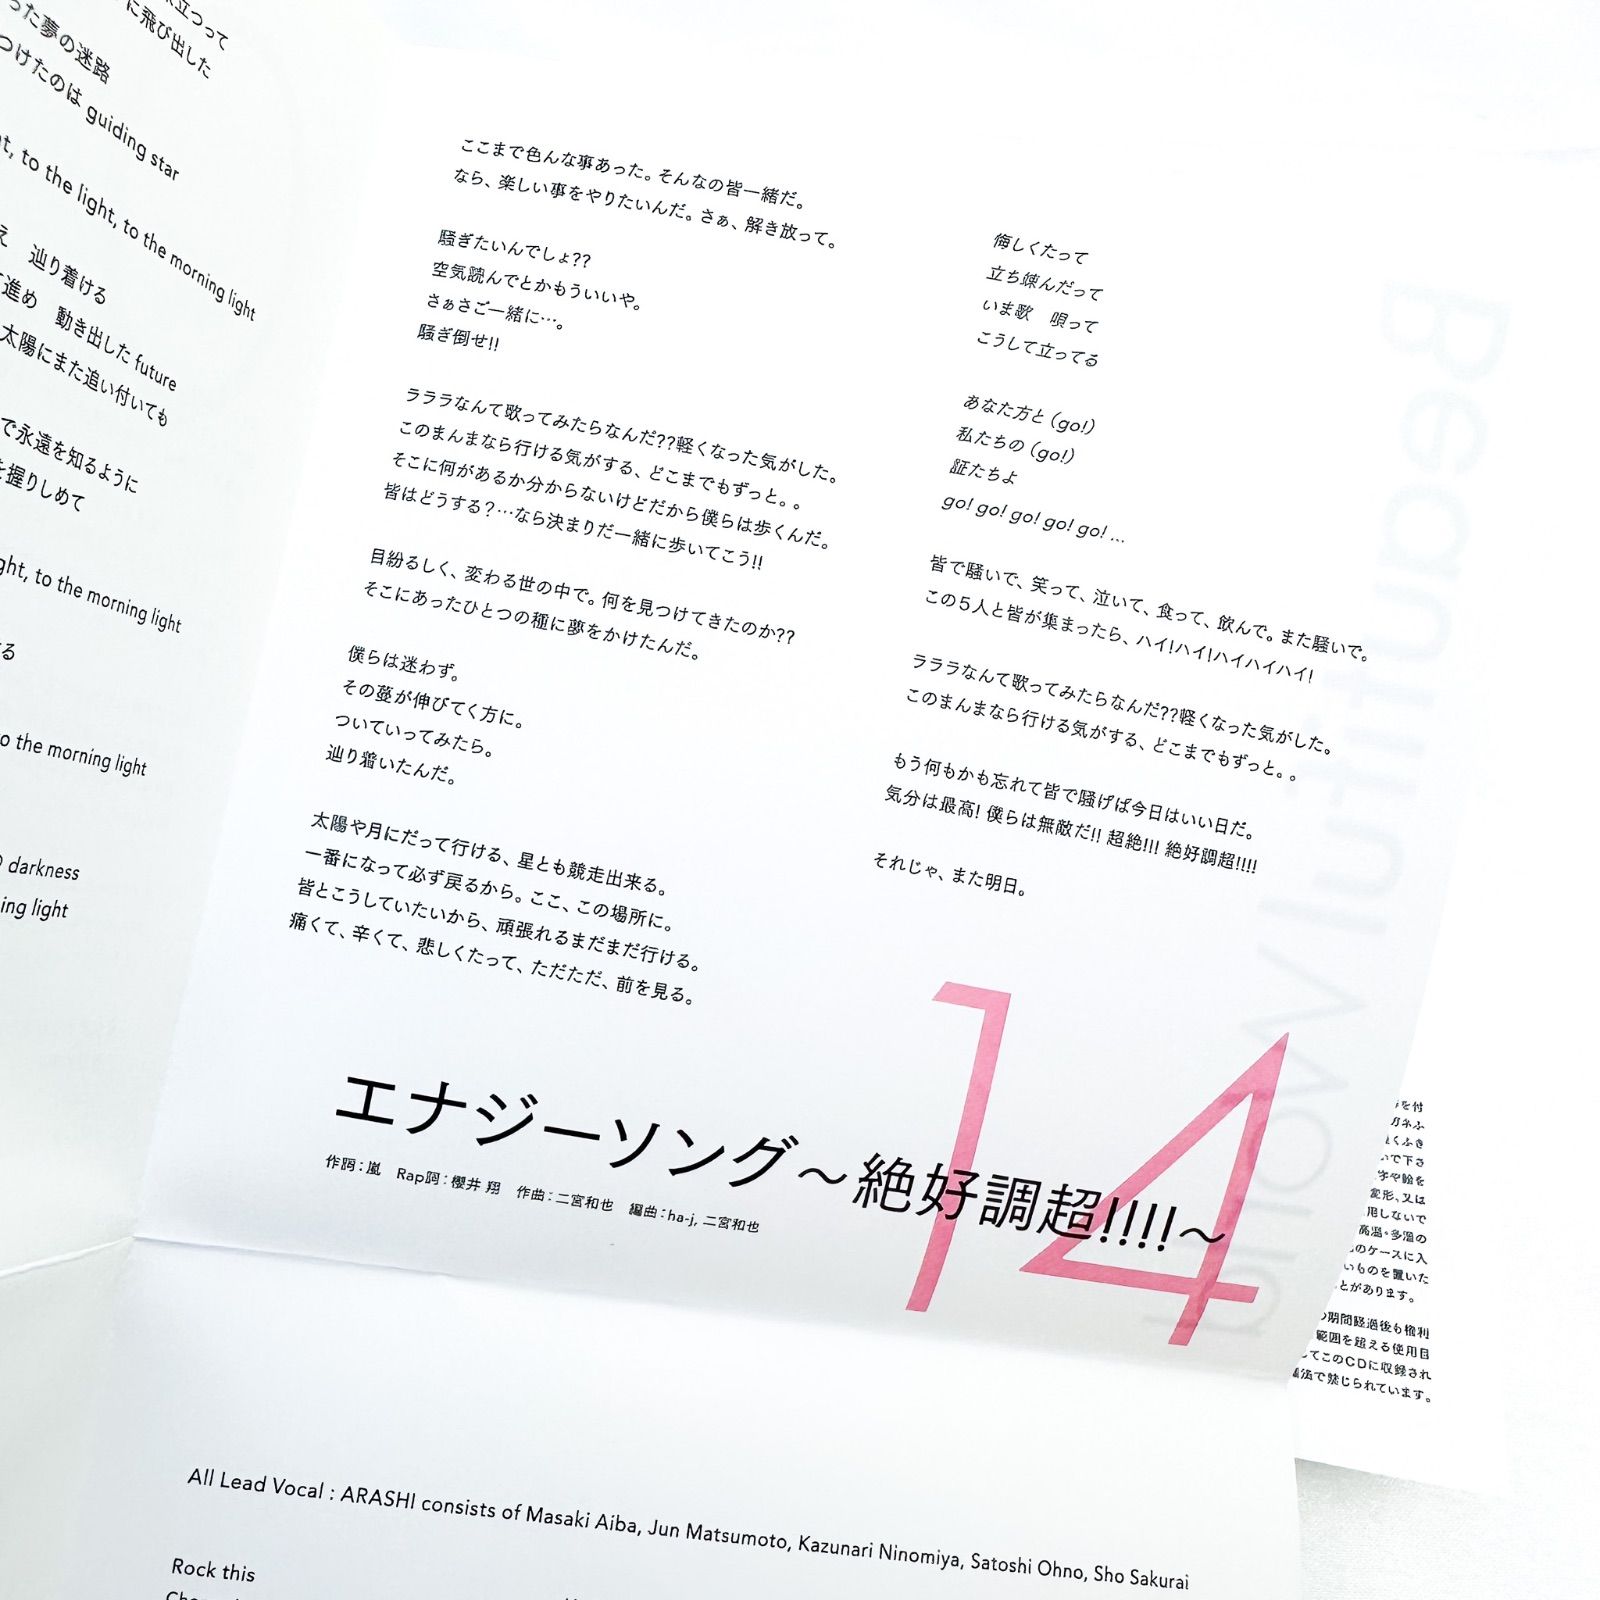 立つって
に飛び出した
った夢の迷路
つけたのは guiding star
to the light, to the morning light
え 辿り着ける
進め 動き出した future
太陽にまた追い付いても
で永遠を知るように
を握りしめて
to the morning light
る
to the morning light
darkness
light
ここまで色んな事あった。そんなの皆一緒だ。
なら、楽しい事をやりたいんだ。さぁ、解き放って。
騒ぎたいんでしょ??
空気読んでとかもういいや。
さぁさご一緒に…。
騒ぎ倒せ!!
ラララなんて歌ってみたらなんだ??軽くなった気がした。
このまんまなら行ける気がする、どこまでもずっと。。
そこに何があるか分からないけどだから僕らは歩くんだ。
皆はどうする?…なら決まりだ一緒に歩いてこう!!
目紛るしく、変わる世の中で。何を見つけてきたのか??
そこにあったひとつの種に夢をかけたんだ。
僕らは迷わず。
その蔓が伸びてく方に。
ついていってみたら。
辿り着いたんだ。
太陽や月にだって行ける、星とも競走出来る。
一番になって必ず戻るから。ここ、この場所に。
皆とこうしていたいから、頑張れるまだまだ行ける。
痛くて、辛くて、悲しくたって、ただただ、前を見る。
悔しくたって
立ち竦んだって
いま歌 唄って
こうして立ってる
あなた方と (go!)
私たちの (go!)
証たちよ
go! go! go! go! go! ...
皆で騒いで、笑って、泣いて、食って、飲んで。また騒いで。
この5人と皆が集まったら、ハイ!ハイ!ハイハイハイ!
ラララなんて歌ってみたらなんだ??軽くなった気がした。
このまんまなら行ける気がする、どこまでもずっと。。
もう何もかも忘れて皆で騒げば今日はいい日だ。
気分は最高! 僕らは無敵だ!! 超絶!!! 絶好調超!!!!
それじゃ、また明日。
14
エナジーソング〜絶好調超!!!!〜
作詞:嵐 Rap詞:櫻井 翔 作曲:二宮和也 編曲:ha-j, 二宮和也
Beautiful World
を付
ガネふ
くふき
で下さ
字や絵を
変形、又は
用しないで
高温・多湿の
のケースに入
いものを置いた
とがあります。
の期間経過後も権利
範囲を超える使用目
してこのCDに収録され
法で禁じられています。
All Lead Vocal : ARASHI consists of Masaki Aiba, Jun Matsumoto, Kazunari Ninomiya, Satoshi Ohno, Sho Sakurai
Rock this